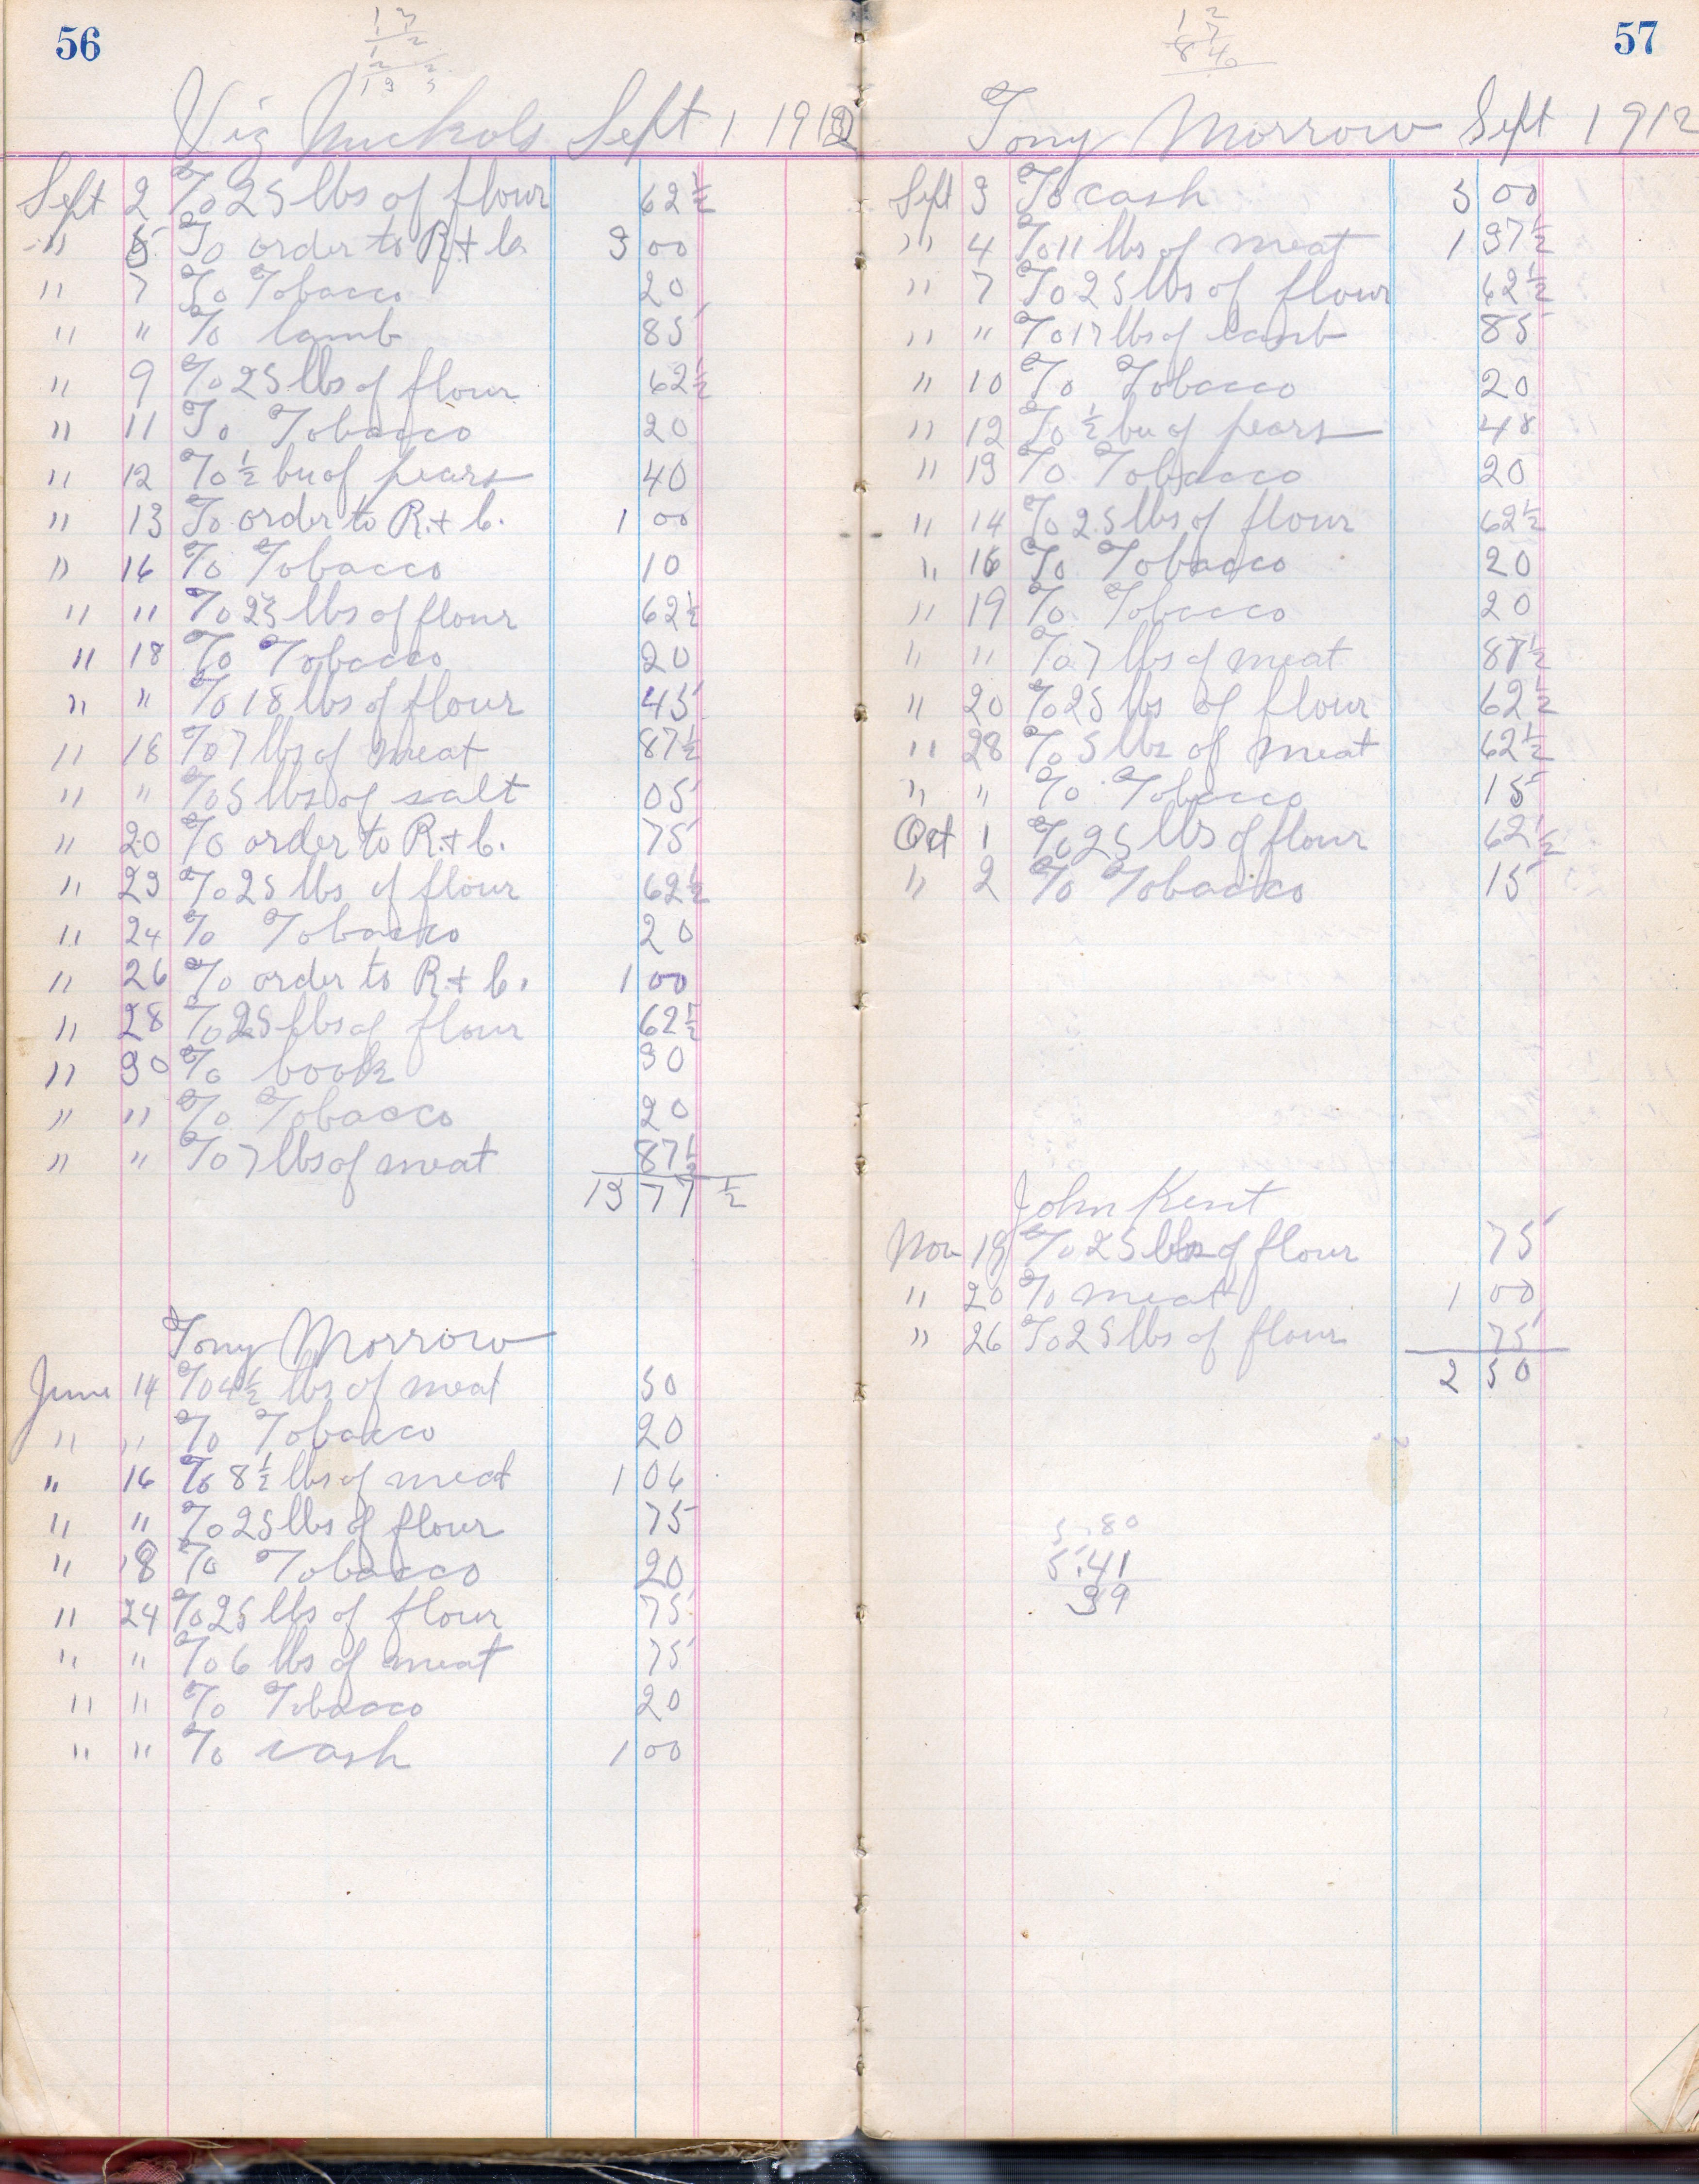 56
Viz Nuckols Sept 1 1912
Sept 2 To 25 lbs of flour 62 1/2
" 5 To order to R + C. 3 00
" 7 To Tobacco 20
" " To lamb 85
" 9 To 25 lbs of flour 62 1/2
" 11 To Tobacco 20
" 12 To 1/2 bu of pears 40
" 13 To order to R. + C. 1 00
" 16 To Tobacco 10
" " To 25 lbs of flour 62 1/2
" 18 To Tobacco 20
" " To 18 lbs of flour 45
" 18 To 7 lbs of meat 87 1/2
" " To 5 lbs of salt 05
" 20 To order to R. + C. 75
" 23 To 25 lbs of flour 62 1/2
" 24 To Tobacco 20
" 26 To order to R. + C. 1 00
" 28 To 25 lbs of flour 62 1/2
" 30 To book 30
" " To Tobacco 20
" " To 7 lbs of meat 87 1/2
13 77 1/2
Tony Morrow
June 14 To 4 1/2 lbs of meat 50
" " To Tobacco 20
" 16 To 8 1/2 lbs of meat 1 06
" " To 25 lbs of flour 75
" 18 To Tobacco 20
" 24 To 25 lbs of flour 75
" " To 6 lbs of meat 75
" " To Tobacco 20
" " To cash 1 00
57
Tony Morrow Sept 1912
Sept 3 To cash 5 00
" 4 To 11 lbs of meat 1 37 1/2
" 7 To 25 lbs of flour 62 1/2
" " To 17 lbs of lamb 85
" 10 To Tobacco 20
" 12 To 1/2 bu of pears 48
" 13 To Tobacco 20
" 14 To 25 lbs of flour 62 1/2
" 16 To Tobacco 20
" 19 To Tobacco 20
" " To 7 lbs of meat 87 1/2
" 20 To 25 lbs of flour 62 1/2
" 28 To 5 lbs of meat 62 1/2
" " To Tobacco 15
Oct 1 To 25 lbs of flour 62 1/2
" 2 To Tobacco 15
John Kent
Nov 19 To 25 lbs of flour 75
" 20 To meat 1 00
" 26 To 25 lbs of flour 75
2 50
5.80
5.41
39